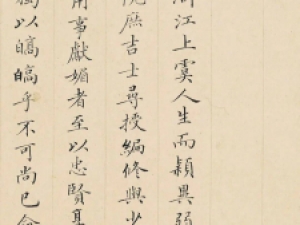 浙江上虞人生而穎異弱
院庶吉士尋授編修與少
用事獻媚者至以忠賢
獨以皜皜乎不可尚已